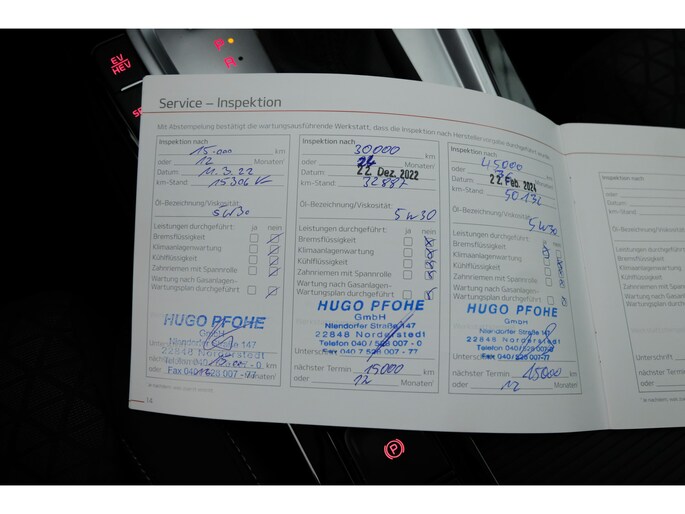 EV
HEV
P
R
Service – Inspektion
Mit Abstempelung bestätigt die wartungsausführende Werkstatt, dass die Inspektion nach Herstellervorgabe durchgeführt wurde.
Inspektion nach
15.000 km
oder 12 Monaten¹
Datum 11.3.22
km-Stand: 15306
Öl-Bezeichnung/Viskosität:
5W30
Leistungen durchgeführt: ja nein
Bremsflüssigkeit
Klimaanlagenwartung
Kühlflüssigkeit
Zahnriemen mit Spannrolle
Wartung nach Gasanlagen-
Wartungsplan durchgeführt
HUGO PFOHE
GmbH
Niendorfer Straße 147
22848 Norderstedt
Fax 040
oder Monaten¹
Inspektion nach
30000 km
oder 24 Monaten¹
Datum 22. Dez. 2022
km-Stand: 32887
Öl-Bezeichnung/Viskosität:
5W30
Leistungen durchgeführt: ja nein
Bremsflüssigkeit
Klimaanlagenwartung
Kühlflüssigkeit
Zahnriemen mit Spannrolle
Wartung nach Gasanlagen-
Wartungsplan durchgeführt
HUGO PFOHE
GmbH
Niendorfer Straße 147
22848 Norderstedt
Telefon 040 / 528 007 - 0
Fax 040 007 - 77
nächster Termin 15000 km
oder 12 Monaten¹
Inspektion nach
45000 km
oder 36 Monaten¹
Datum 22. Feb. 2024
km-Stand:
Öl-Bezeichnung/Viskosität:
5W30
Leistungen durchgeführt: ja nein
Bremsflüssigkeit
Klimaanlagenwartung
Kühlflüssigkeit
Zahnriemen mit Spannrolle
Wartung nach Gasanlagen-
Wartungsplan durchgeführt
HUGO PFOHE
GmbH
Niendorfer Straße 147
22848 Norderstedt
nächster Termin 15000 km
oder 12 Monaten¹
14
Inspektion nach
oder
Datum
km-Stand:
Öl-Bezeichnung/Viskosität:
Leistungen durchgeführt:
Bremsflüssigkeit
Klimaanlagenwartung
Kühlflüssigkeit
Zahnriemen mit
Wartung nach
Wartungsplan
Unterschrift
nächster Termin
oder
P